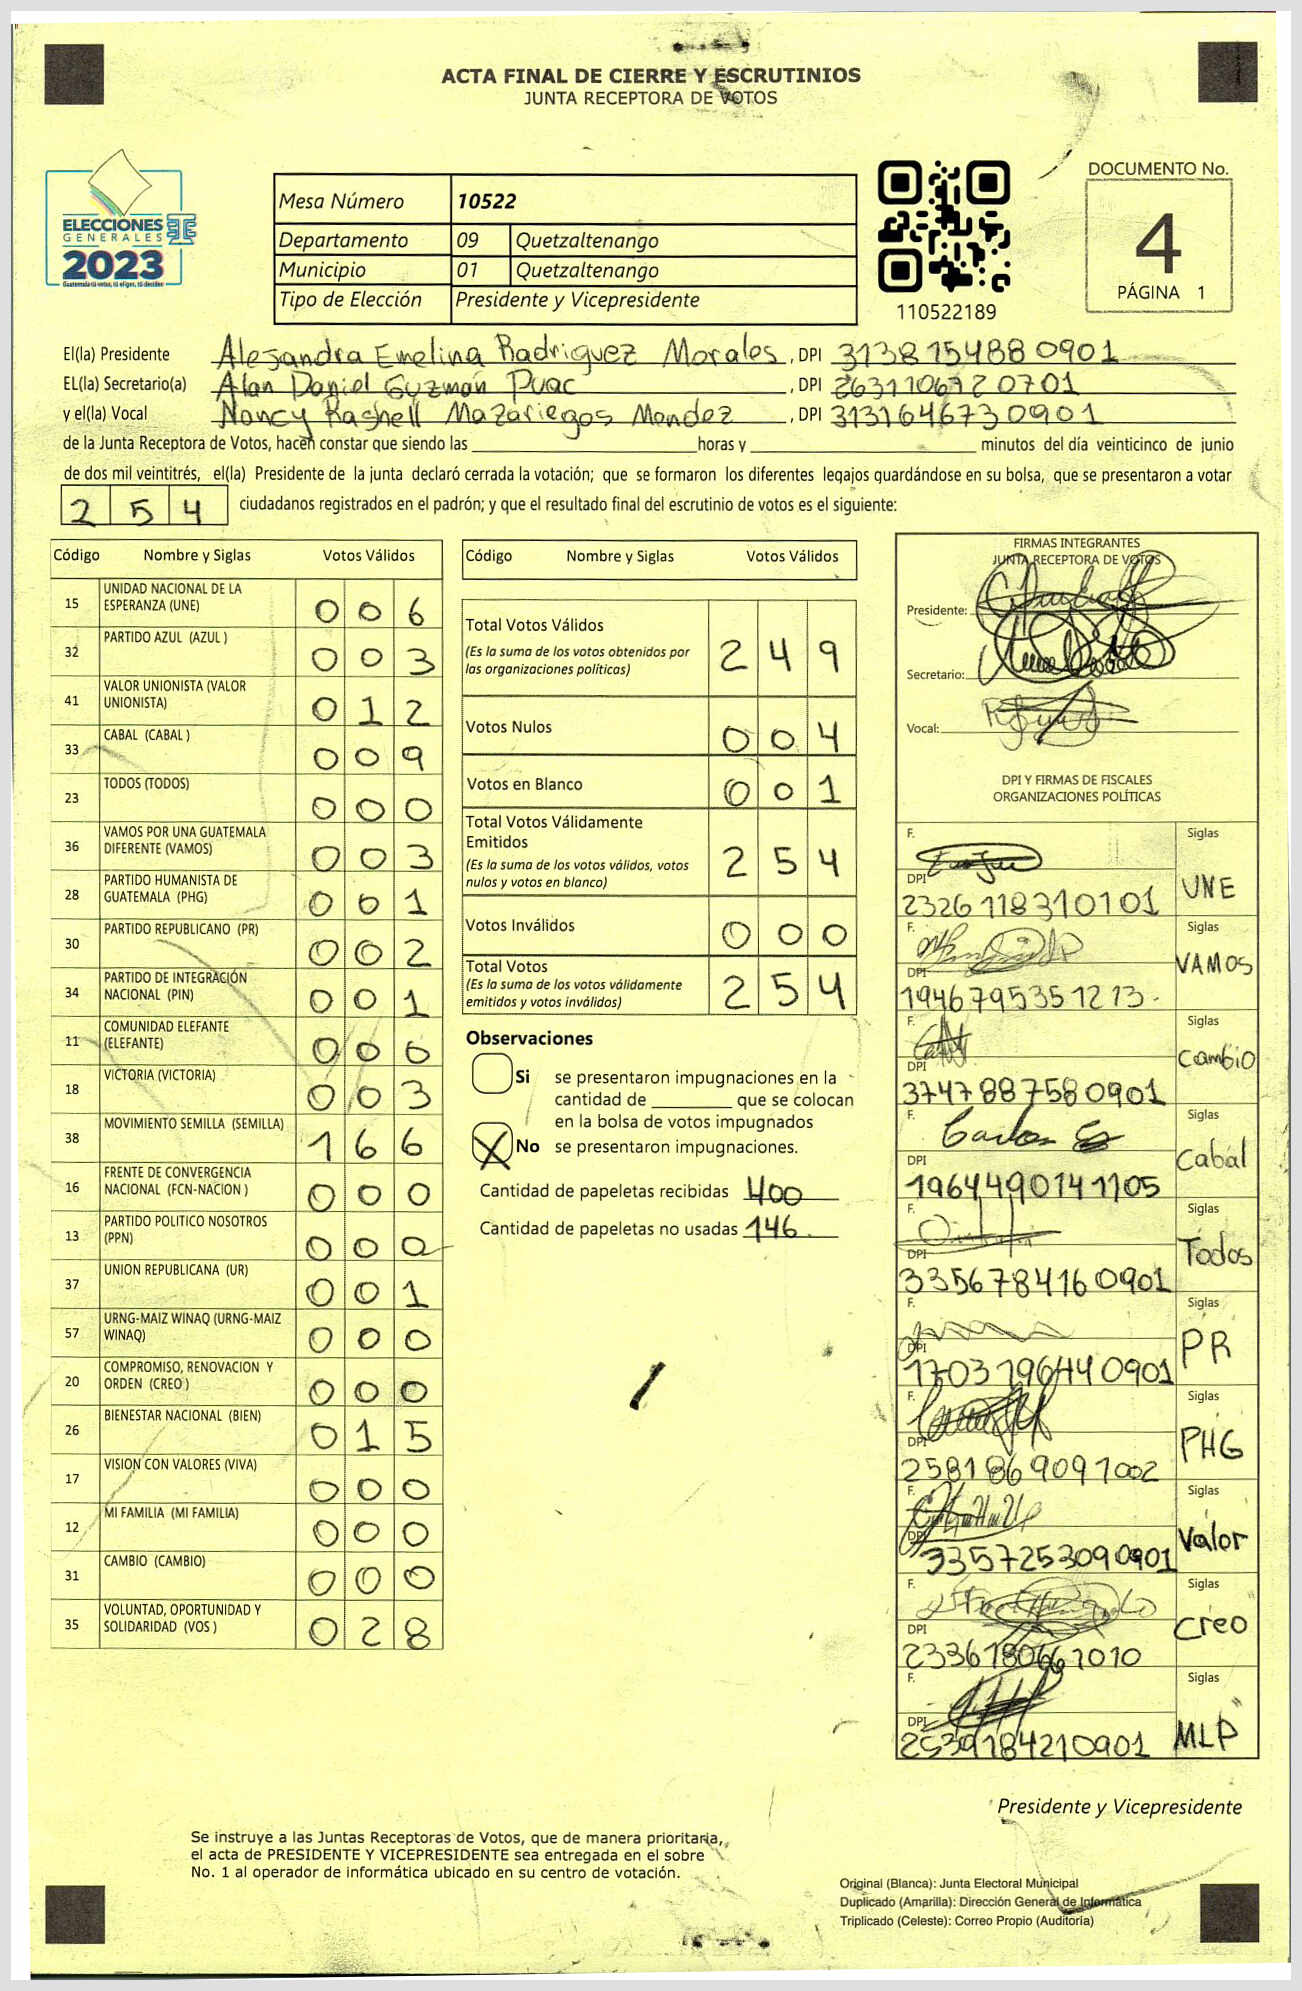 ACTA FINAL DE CIERRE Y ESCRUTINIOS
JUNTA RECEPTORA DE VOTOS
ELECCIONES
GENERALES
2023
Guatemala tú votas, tú eliges, tú decides
Mesa Número 10522
Departamento 09 Quetzaltenango
Municipio 01 Quetzaltenango
Tipo de Elección Presidente y Vicepresidente
110522189
DOCUMENTO No.
4
PÁGINA 1
El(la) Presidente Alejandra Emelina Rodriguez Morales, DPI 3138154880901
EL(la) Secretario(a) Alan Daniel Guzmán Puac, DPI 2631106720701
y el(la) Vocal Nancy Rashell Mazariegos Mendez, DPI 3131646730901
de la Junta Receptora de Votos, hacen constar que siendo las horas y minutos del día veinticinco de junio
de dos mil veintitrés, el(la) Presidente de la junta declaró cerrada la votación; que se formaron los diferentes legajos guardándose en su bolsa, que se presentaron a votar
254 ciudadanos registrados en el padrón; y que el resultado final del escrutinio de votos es el siguiente:
Código Nombre y Siglas Votos Válidos
15 UNIDAD NACIONAL DE LA ESPERANZA (UNE) 006
32 PARTIDO AZUL (AZUL ) 003
41 VALOR UNIONISTA (VALOR UNIONISTA) 012
33 CABAL (CABAL ) 009
23 TODOS (TODOS) 000
36 VAMOS POR UNA GUATEMALA DIFERENTE (VAMOS) 003
28 PARTIDO HUMANISTA DE GUATEMALA (PHG) 001
30 PARTIDO REPUBLICANO (PR) 002
34 PARTIDO DE INTEGRACIÓN NACIONAL (PIN) 001
11 COMUNIDAD ELEFANTE (ELEFANTE) 000
18 VICTORIA (VICTORIA) 003
38 MOVIMIENTO SEMILLA (SEMILLA) 166
16 FRENTE DE CONVERGENCIA NACIONAL (FCN-NACION ) 000
13 PARTIDO POLITICO NOSOTROS (PPN) 000
37 UNION REPUBLICANA (UR) 001
57 URNG-MAIZ WINAQ (URNG-MAIZ WINAQ) 000
20 COMPROMISO, RENOVACION Y ORDEN (CREO ) 000
26 BIENESTAR NACIONAL (BIEN) 015
17 VISION CON VALORES (VIVA) 000
12 MI FAMILIA (MI FAMILIA) 000
31 CAMBIO (CAMBIO) 000
35 VOLUNTAD, OPORTUNIDAD Y SOLIDARIDAD (VOS ) 028
Código Nombre y Siglas Votos Válidos
Total Votos Válidos 249
(Es la suma de los votos obtenidos por
las organizaciones políticas)
Votos Nulos 004
Votos en Blanco 001
Total Votos Válidamente
Emitidos 254
(Es la suma de los votos válidos, votos
nulos y votos en blanco)
Votos Inválidos 000
Total Votos 254
(Es la suma de los votos válidamente
emitidos y votos inválidos)
Observaciones
Si se presentaron impugnaciones en la
cantidad de que se colocan
en la bolsa de votos impugnados
X No se presentaron impugnaciones.
Cantidad de papeletas recibidas 400
Cantidad de papeletas no usadas 146
FIRMAS INTEGRANTES
JUNTA RECEPTORA DE VOTOS
Presidente:
Secretario:
Vocal:
DPI Y FIRMAS DE FISCALES
ORGANIZACIONES POLÍTICAS
F. Siglas
DPI UNE
2326118310101
F. Siglas
DPI VAMOS
1946795351213
F. Siglas
DPI Cambio
3747887580901
F. Carlos Siglas
DPI Cabal
1964490141105
F. Siglas
DPI Todos
3356784160901
F. Siglas
DPI PR
1703196440901
F. Siglas
DPI PHG
2581869091002
F. Siglas
DPI Valor
3357253090901
F. Siglas
DPI Creo
2336180661010
F. Siglas
DPI MLP
2539184210901
Presidente y Vicepresidente
Se instruye a las Juntas Receptoras de Votos, que de manera prioritaria,
el acta de PRESIDENTE Y VICEPRESIDENTE sea entregada en el sobre
No. 1 al operador de informática ubicado en su centro de votación.
Original (Blanca): Junta Electoral Municipal
Duplicado (Amarilla): Dirección General de Informática
Triplicado (Celeste): Correo Propio (Auditoría)